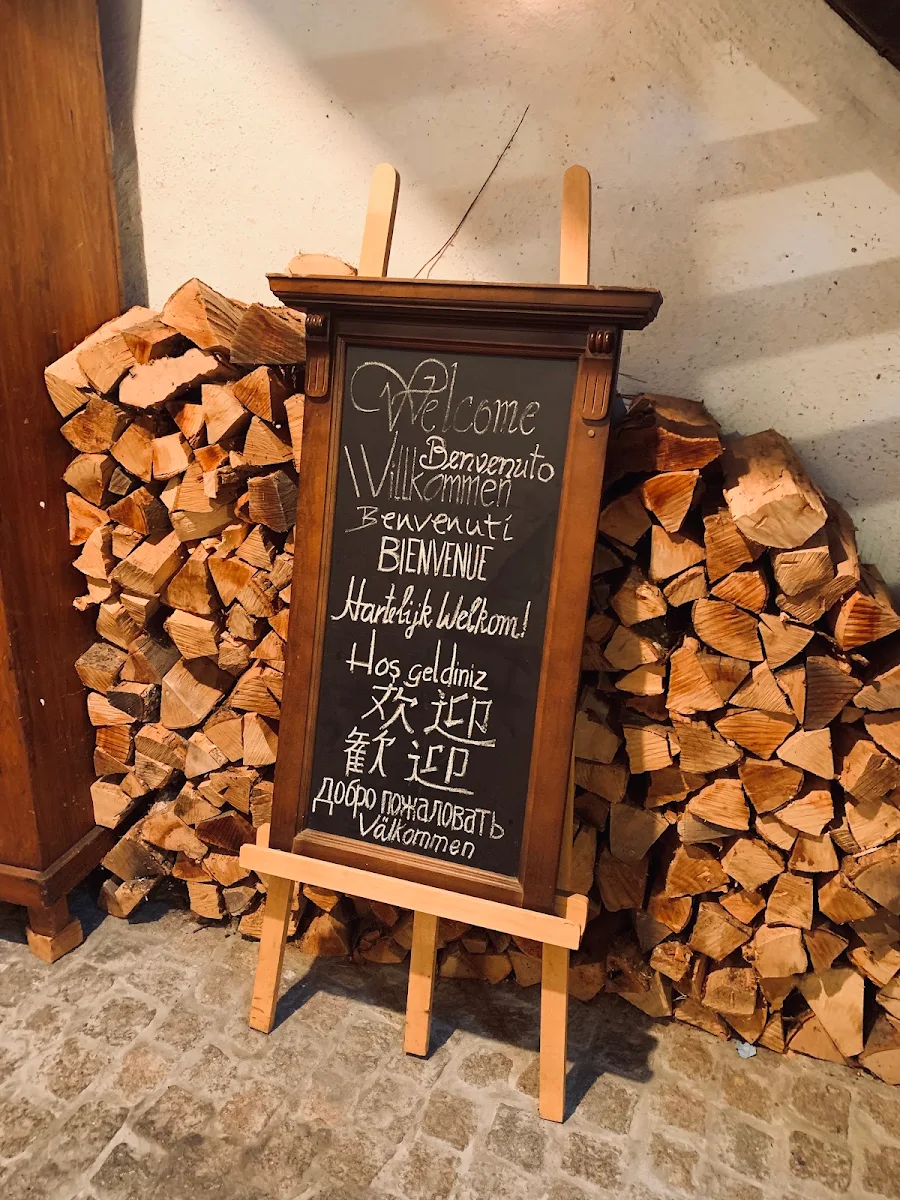 Welcome
Benvenuto
Willkommen
Benvenuti
BIENVENUE
Hartelijk Welkom!
Hoş geldiniz
欢迎
歡迎
добро пожаловать
Välkommen